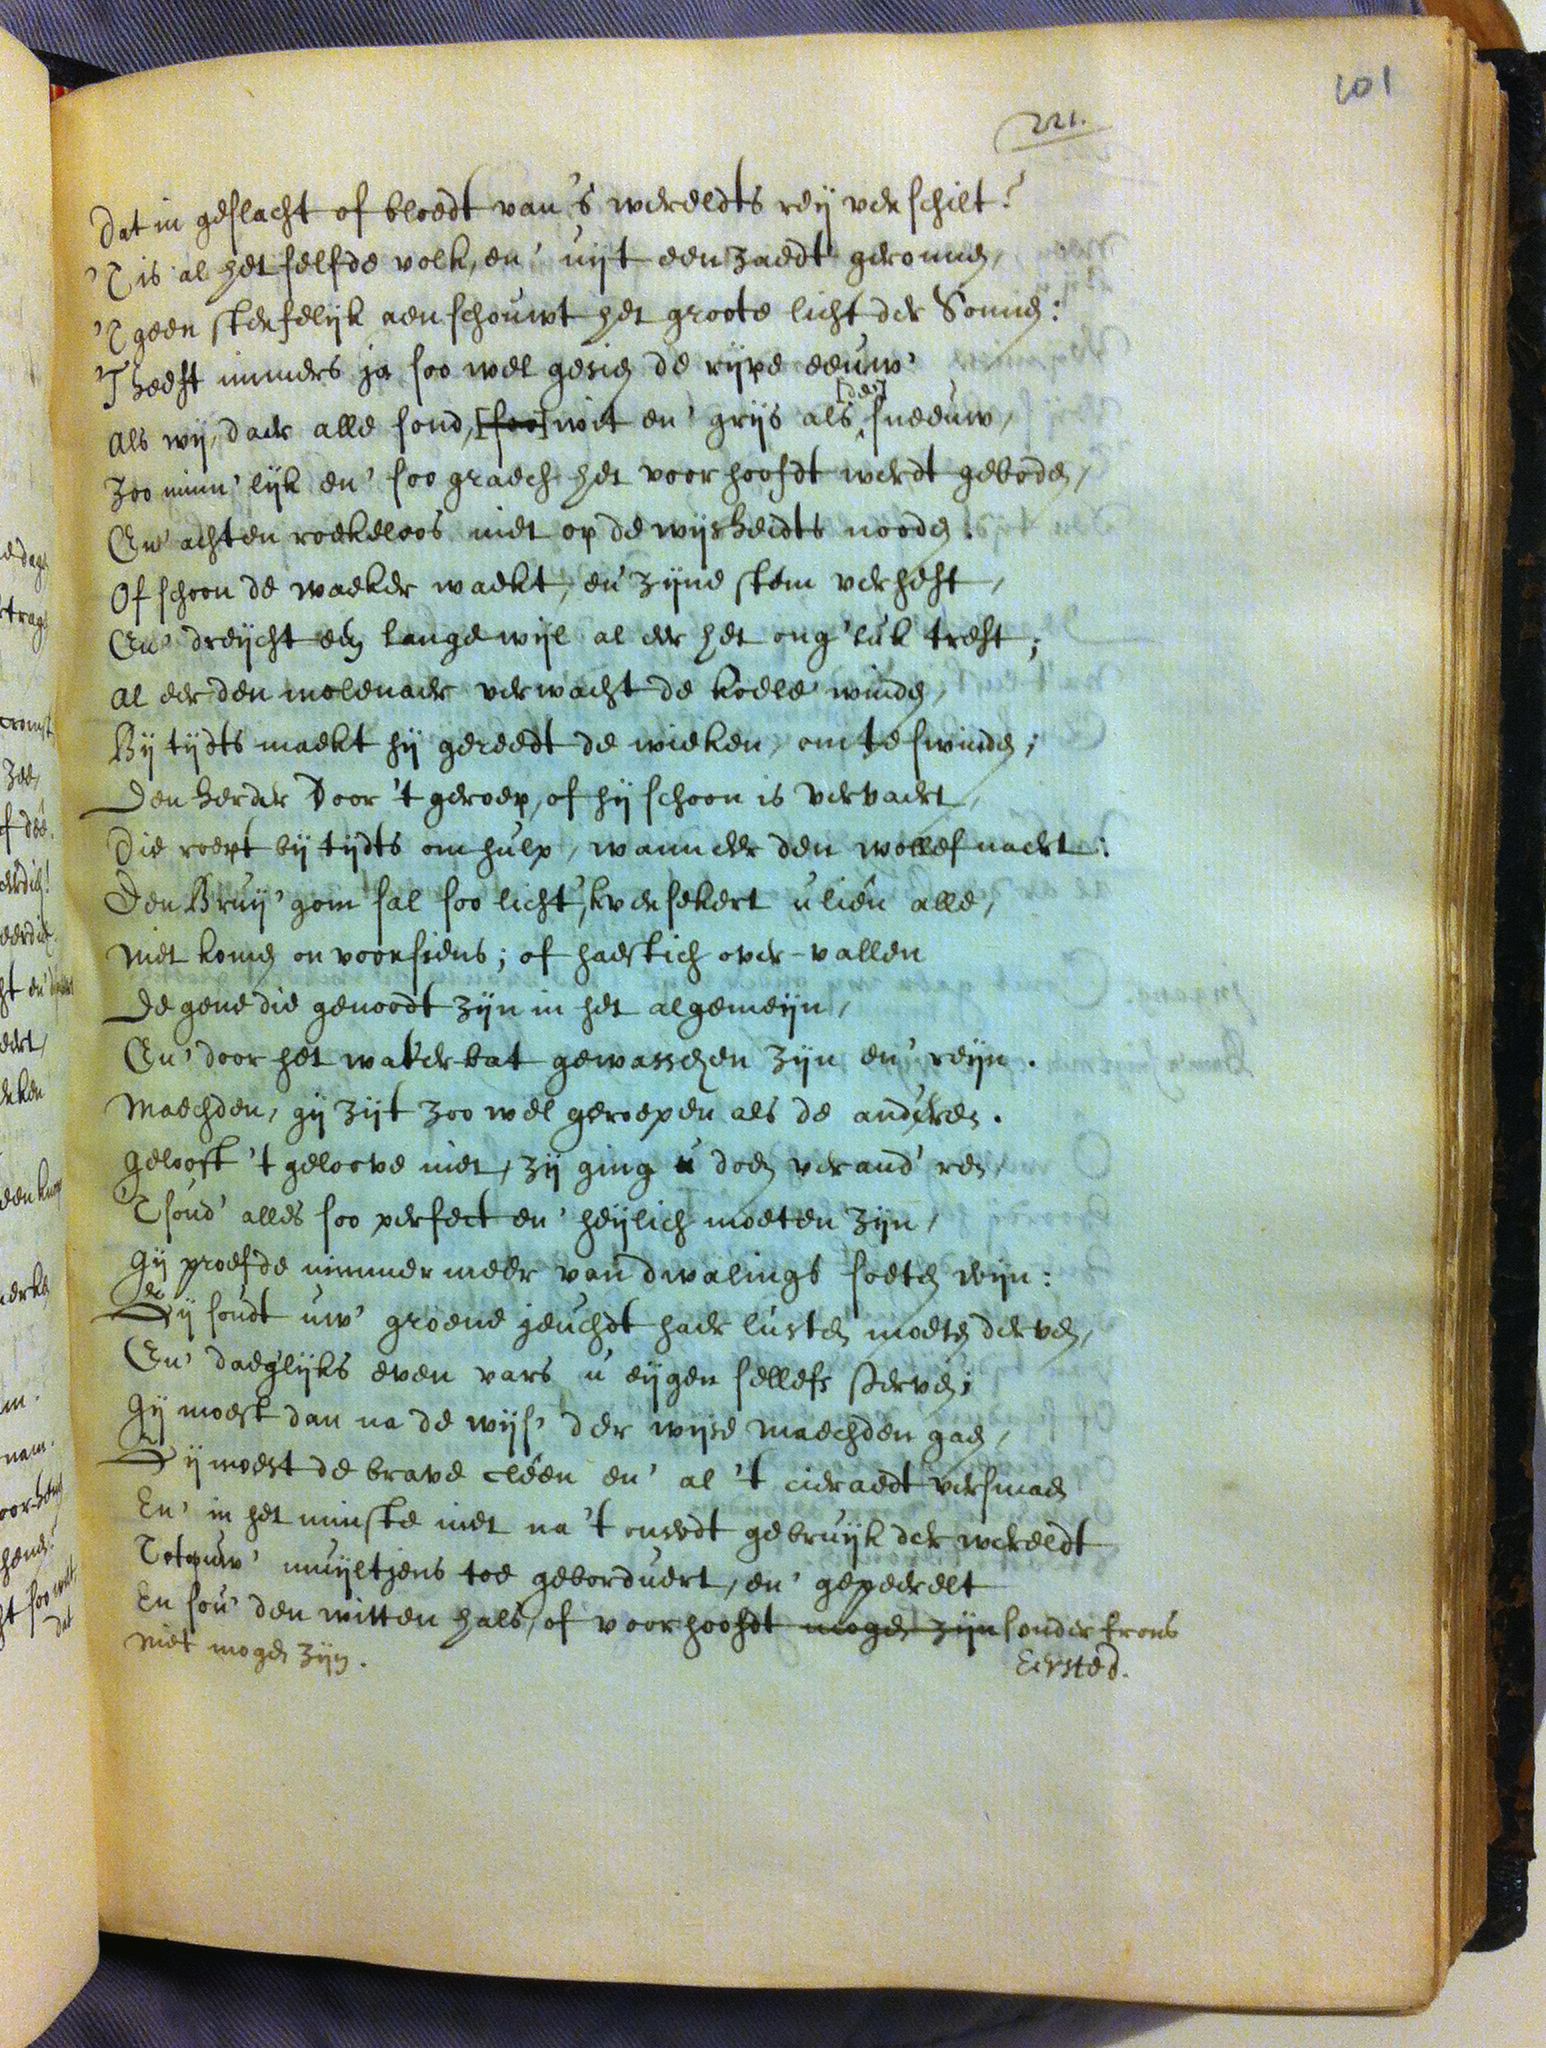 101
221.
Dat in geslacht of bloedt van 's wereldts reij verschilt?
'T is al het selfde volk, en' uijt een zaedt geronnen,
'T geen sterfelijk aenschouwt het groote licht der Sonnen:
'T heeft immers ja soo wel gesien de rijpe eeuw'
Als wij, daer alle sond, [soo] wit en' grijs als [de'] sneeuw,
Zoo minn'lijk en' soo graech het voorhoofdt werdt geboden,
En' achten roekeloos niet op de wijsheidts nooden.
Of schoon de waeker waekt, en' zijne stem verheft,
En' dreijcht een lange wijl al eer het ong'luk treft;
Al eer den molenaer verwacht de koele winden,
Bij tijdts maekt hij gereedt de wieken, om te swinden;
Den herder door 't geroep, of hij schoon is vervaert,
Die roept bij tijdts om hulp, wanneer den wollef naert:
Den Bruij'gom sal soo licht, 'k versekert u liên alle,
Niet komen onvoorsiens; of haestich over-vallen
De gene die genoodt zijn in het algemeijn,
En' door het waterbat gewasschen zijn en' reijn.
Maechden, gij zijt zoo wel geroepen als de anderen.
Gelooft 't geloove niet, zij ging u doen verand'ren,
'T sond' alles soo perfect en' heijlich moeten zijn,
Gij proefde nimmermeer van dwalings soeten wijn:
Gij soudt uw' groene jeuchdt haer lusten moeten derven,
En' daeglijks even vars u eijgen sellefs sterven;
Gij moest dan na de wijs' der wijse maechden gaen,
Gij moest de brave cléen en' al 't cieraedt versmaen
En' in het minste niet na 't onsedt gebruijk der wereldt
Tot uw' muijltjens toe geborduert, en' gepeerelt
En sou' den witten hals, of voorhoofdt mogen zijn sonder frons
niet mogen zijn.
Eersted.